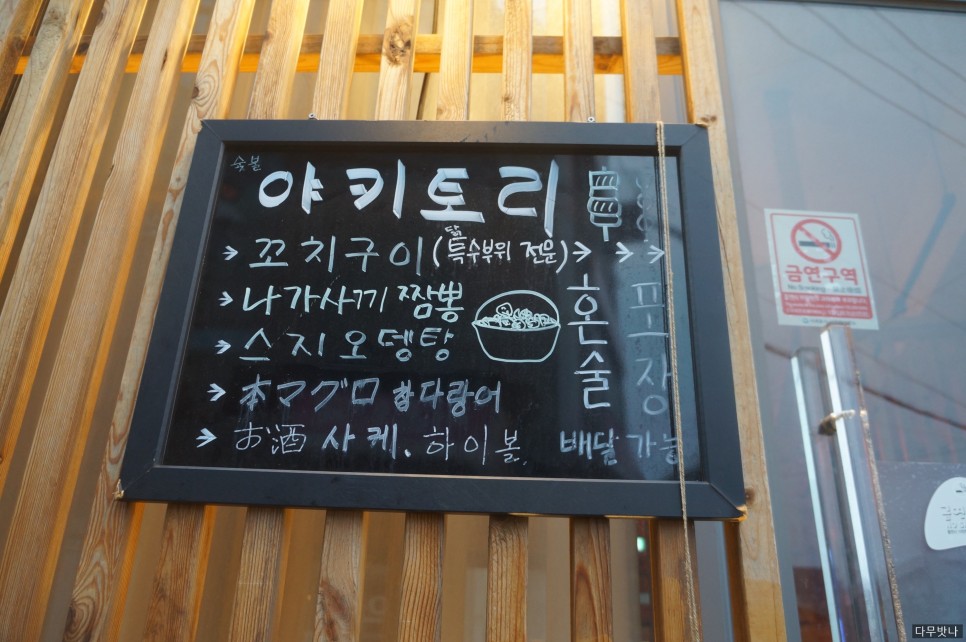 숯불
야키토리
→ 꼬치구이 (닭 특수부위 전문) → → →
→ 나가사끼 짬뽕
→ 스지오뎅탕
→ 本マグロ 참다랑어
→ お酒 사케. 하이볼.
혼술
포장
배달가능
금연구역
No Smoking
다무밧나